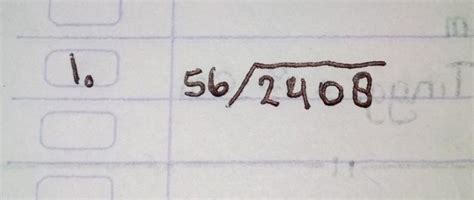 1. 56/2408